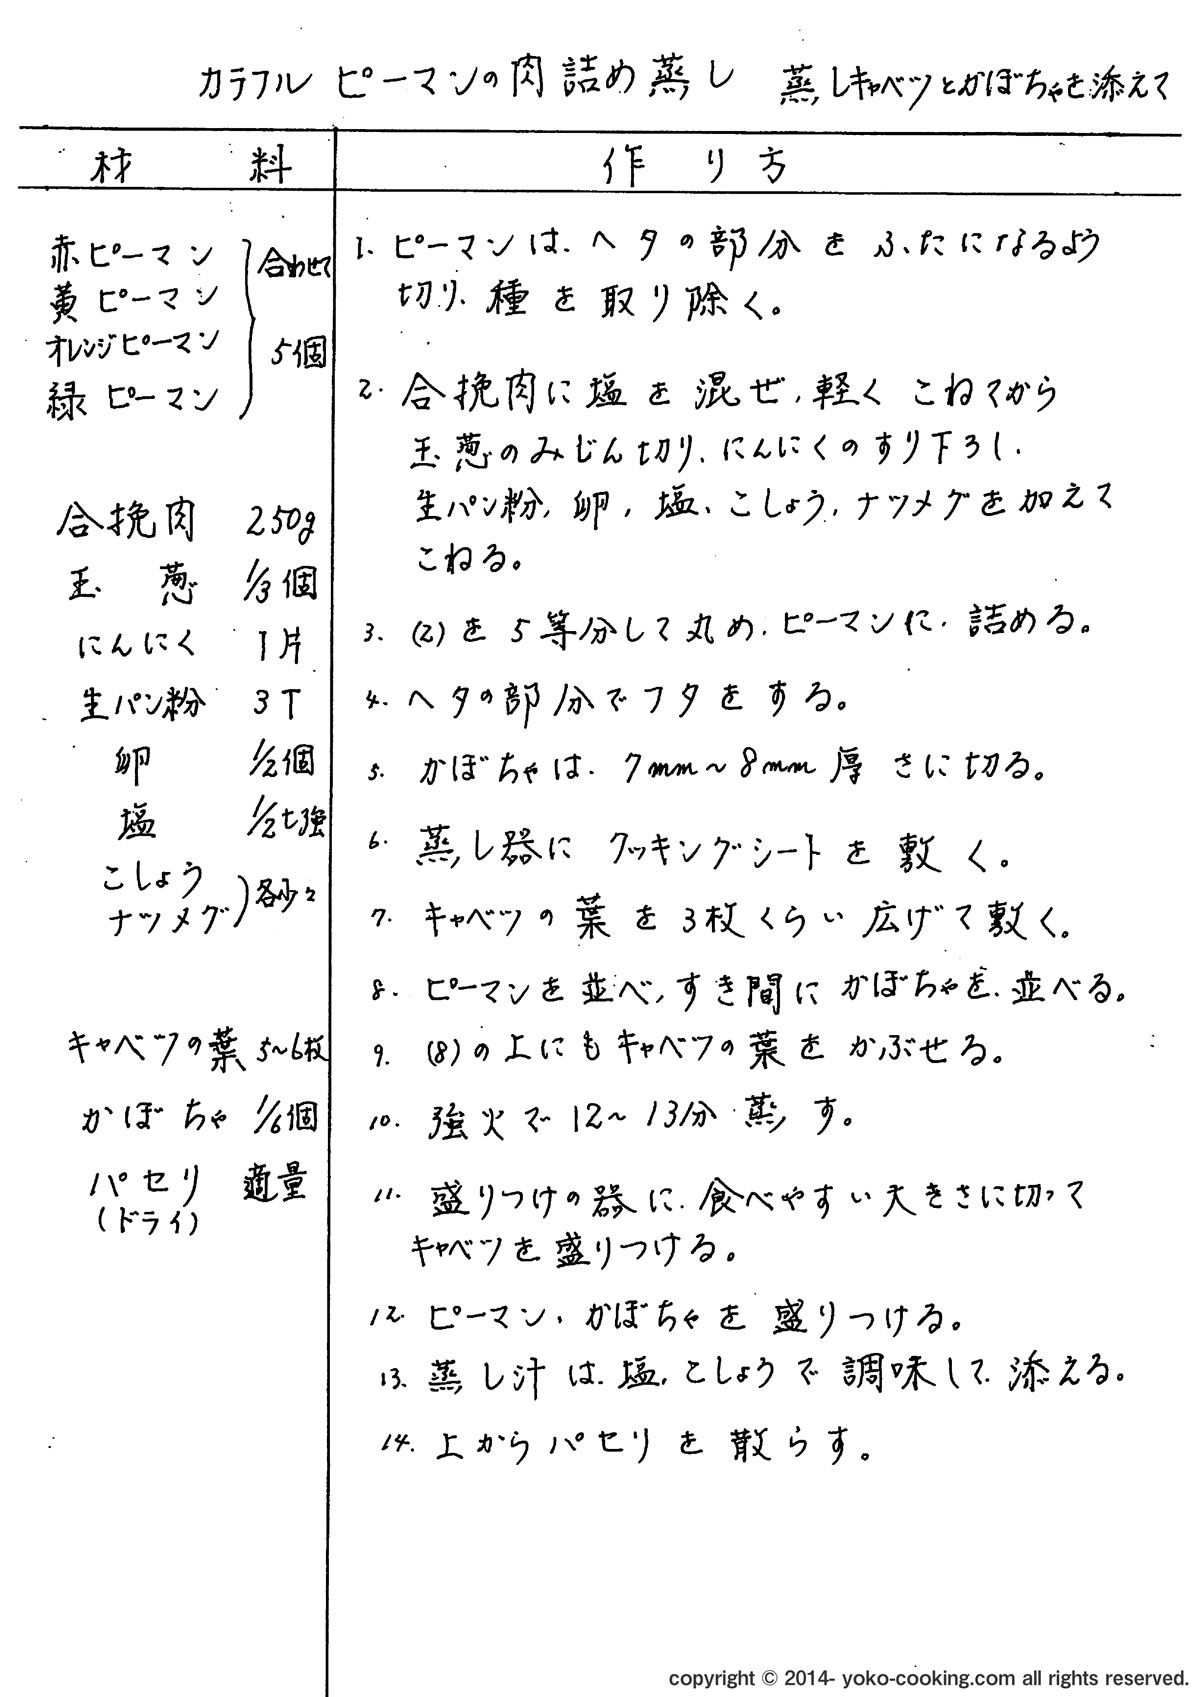 カラフル ピーマンの肉詰め蒸し 蒸しキャベツとかぼちゃを添えて
材 料
作り方
赤ピーマン
黄ピーマン
オレンジピーマン
緑ピーマン
合わせて
5個
合挽肉 250g
玉葱 1/3個
にんにく 1片
生パン粉 3T
卵 1/2個
塩 1/2t強
こしょう
ナツメグ
各少々
キャベツの葉 5~6枚
かぼちゃ 1/6個
パセリ 適量
(ドライ)
1. ピーマンは、ヘタの部分をふたになるよう
切り、種を取り除く。
2. 合挽肉に塩を混ぜ、軽くこねてから
玉葱のみじん切り、にんにくのすり下ろし、
生パン粉、卵、塩、こしょう、ナツメグを加えて
こねる。
3. (2)を5等分して丸め、ピーマンに、詰める。
4. ヘタの部分でフタをする。
5. かぼちゃは、7mm~8mm厚さに切る。
6. 蒸し器にクッキングシートを敷く。
7. キャベツの葉を3枚くらい広げて敷く。
8. ピーマンを並べ、すき間にかぼちゃを、並べる。
9. (8)の上にもキャベツの葉をかぶせる。
10. 強火で12~13分蒸す。
11. 盛りつけの器に、食べやすい大きさに切って
キャベツを盛りつける。
12. ピーマン、かぼちゃを盛りつける。
13. 蒸し汁は、塩、こしょうで調味して、添える。
14. 上からパセリを散らす。
copyright © 2014- yoko-cooking.com all rights reserved.